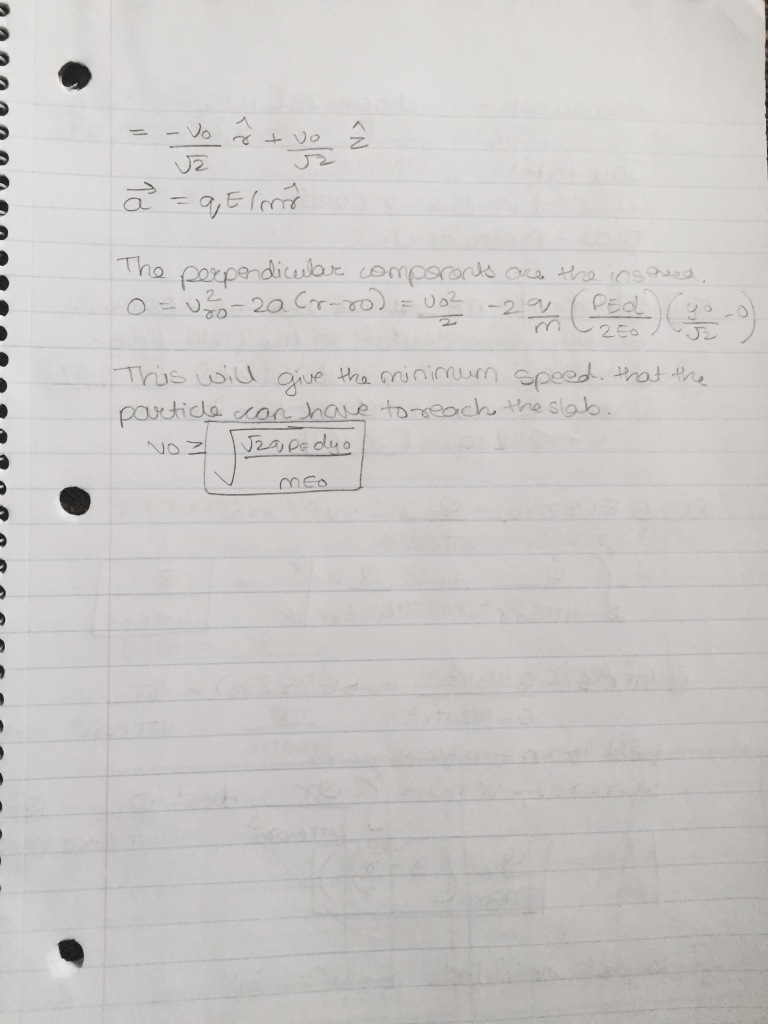 = -v0/√2 r̂ + v0/√2 ẑ
a⃗ = qE/m r̂
The perpendicular components are the
0 = v²r0 - 2a(r-r0) = v0²/2 - 2 q/m (ρEd/2ε0)(y0/√2 - 0)
This will give the minimum speed. that the
particle can have to reach the slab.
v0 ≥ √(√2qρEdy0/mε0)